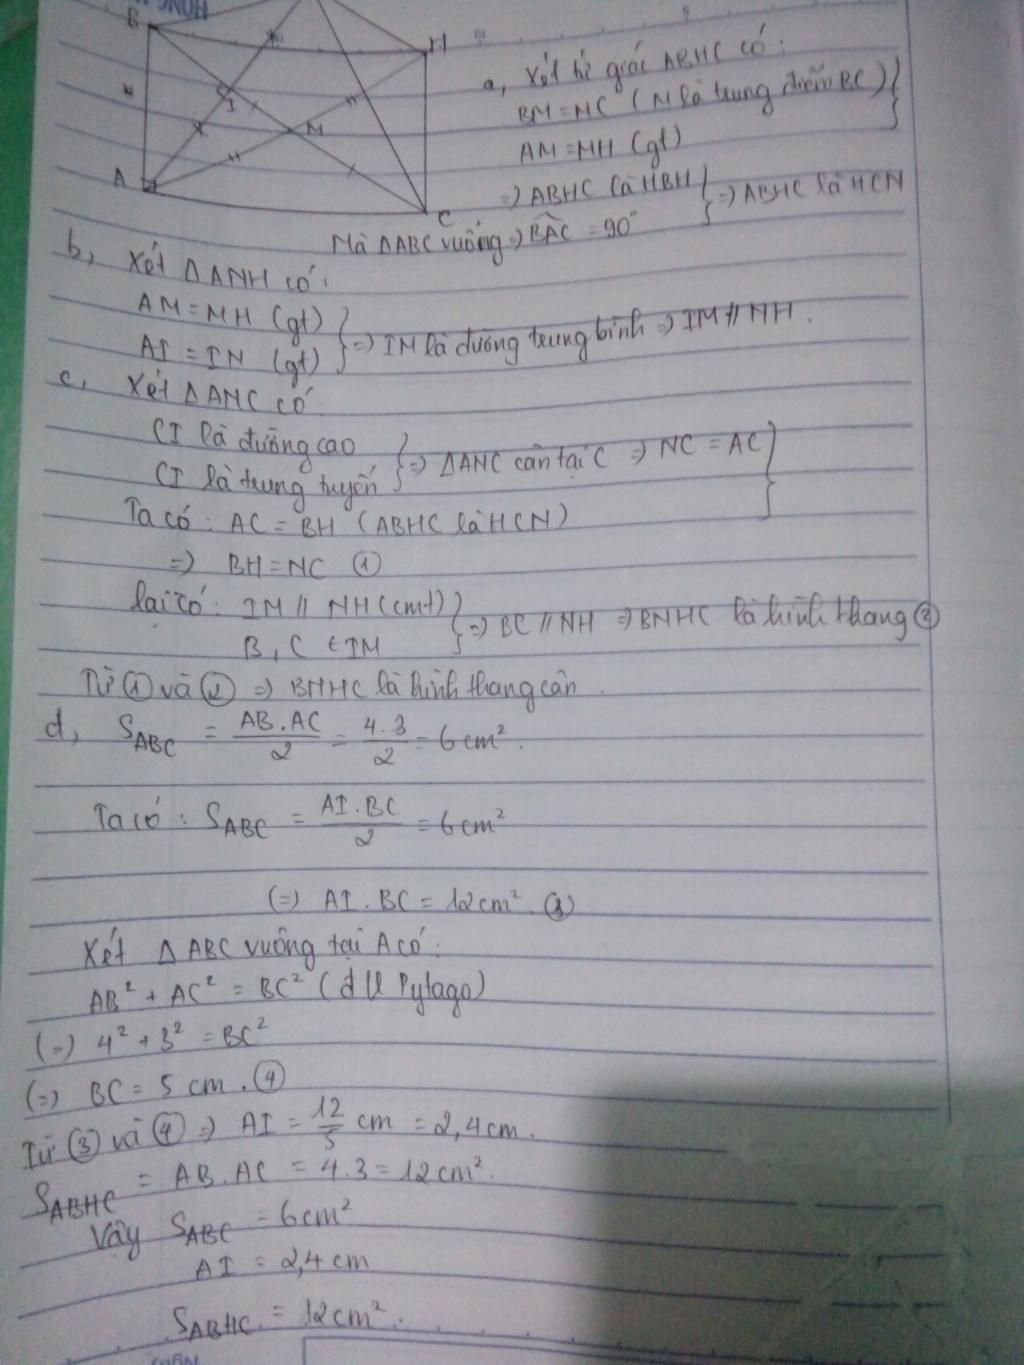 B
H
I
M
A
C
a, Xét tứ giác ABHC có:
BM=MC (M là trung điểm BC)
AM=MH (gt)
=> ABHC là HBH
=> ABHC là HCN
Mà ΔABC vuông => BAC = 90°
b, Xét ΔANH có:
AM=MH (gt)
AI=IN (gt)
=> IM là đường trung bình => IM // NH.
c, Xét ΔANC có
CI là đường cao
CI là trung tuyến
=> ΔANC cân tại C => NC = AC
Ta có: AC = BH (ABHC là HCN)
=> BH=NC ①
lại có: IM // NH (cmt)
B, C ∈ IM
=> BC // NH => BNHC là hình thang ②
Từ ① và ② => BNHC là hình thang cân.
d, S_ABC = AB.AC/2 = 4.3/2 = 6 cm².
Ta có: S_ABC = AI.BC/2 = 6 cm²
(=) AI.BC = 12 cm². ③
Xét ΔABC vuông tại A có:
AB² + AC² = BC² (đ lí Pytago)
(=) 4² + 3² = BC²
(=) BC = 5 cm. ④
Từ ③ và ④ => AI = 12/5 cm = 2,4 cm.
S_ABHC = AB.AC = 4.3 = 12 cm².
Vậy S_ABC = 6 cm²
AI = 2,4 cm
S_ABHC = 12 cm².